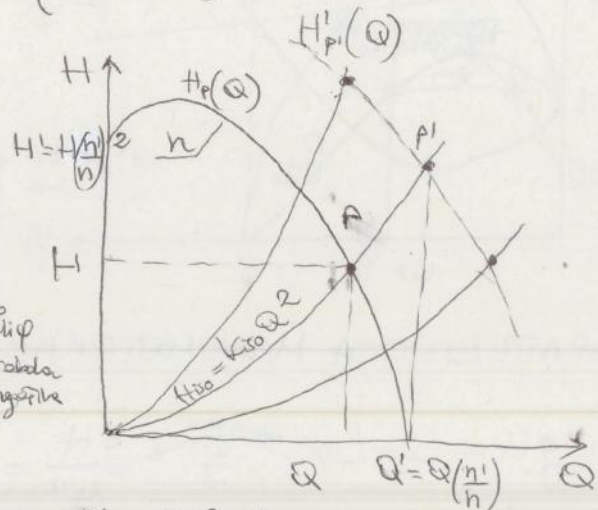 H'p'(Q)
H
Hp(Q)
H' = H(n'/n)²
n
P'
P
H
Hiso = KisoQ²
Q
Q' = Q(n'/n)
Q